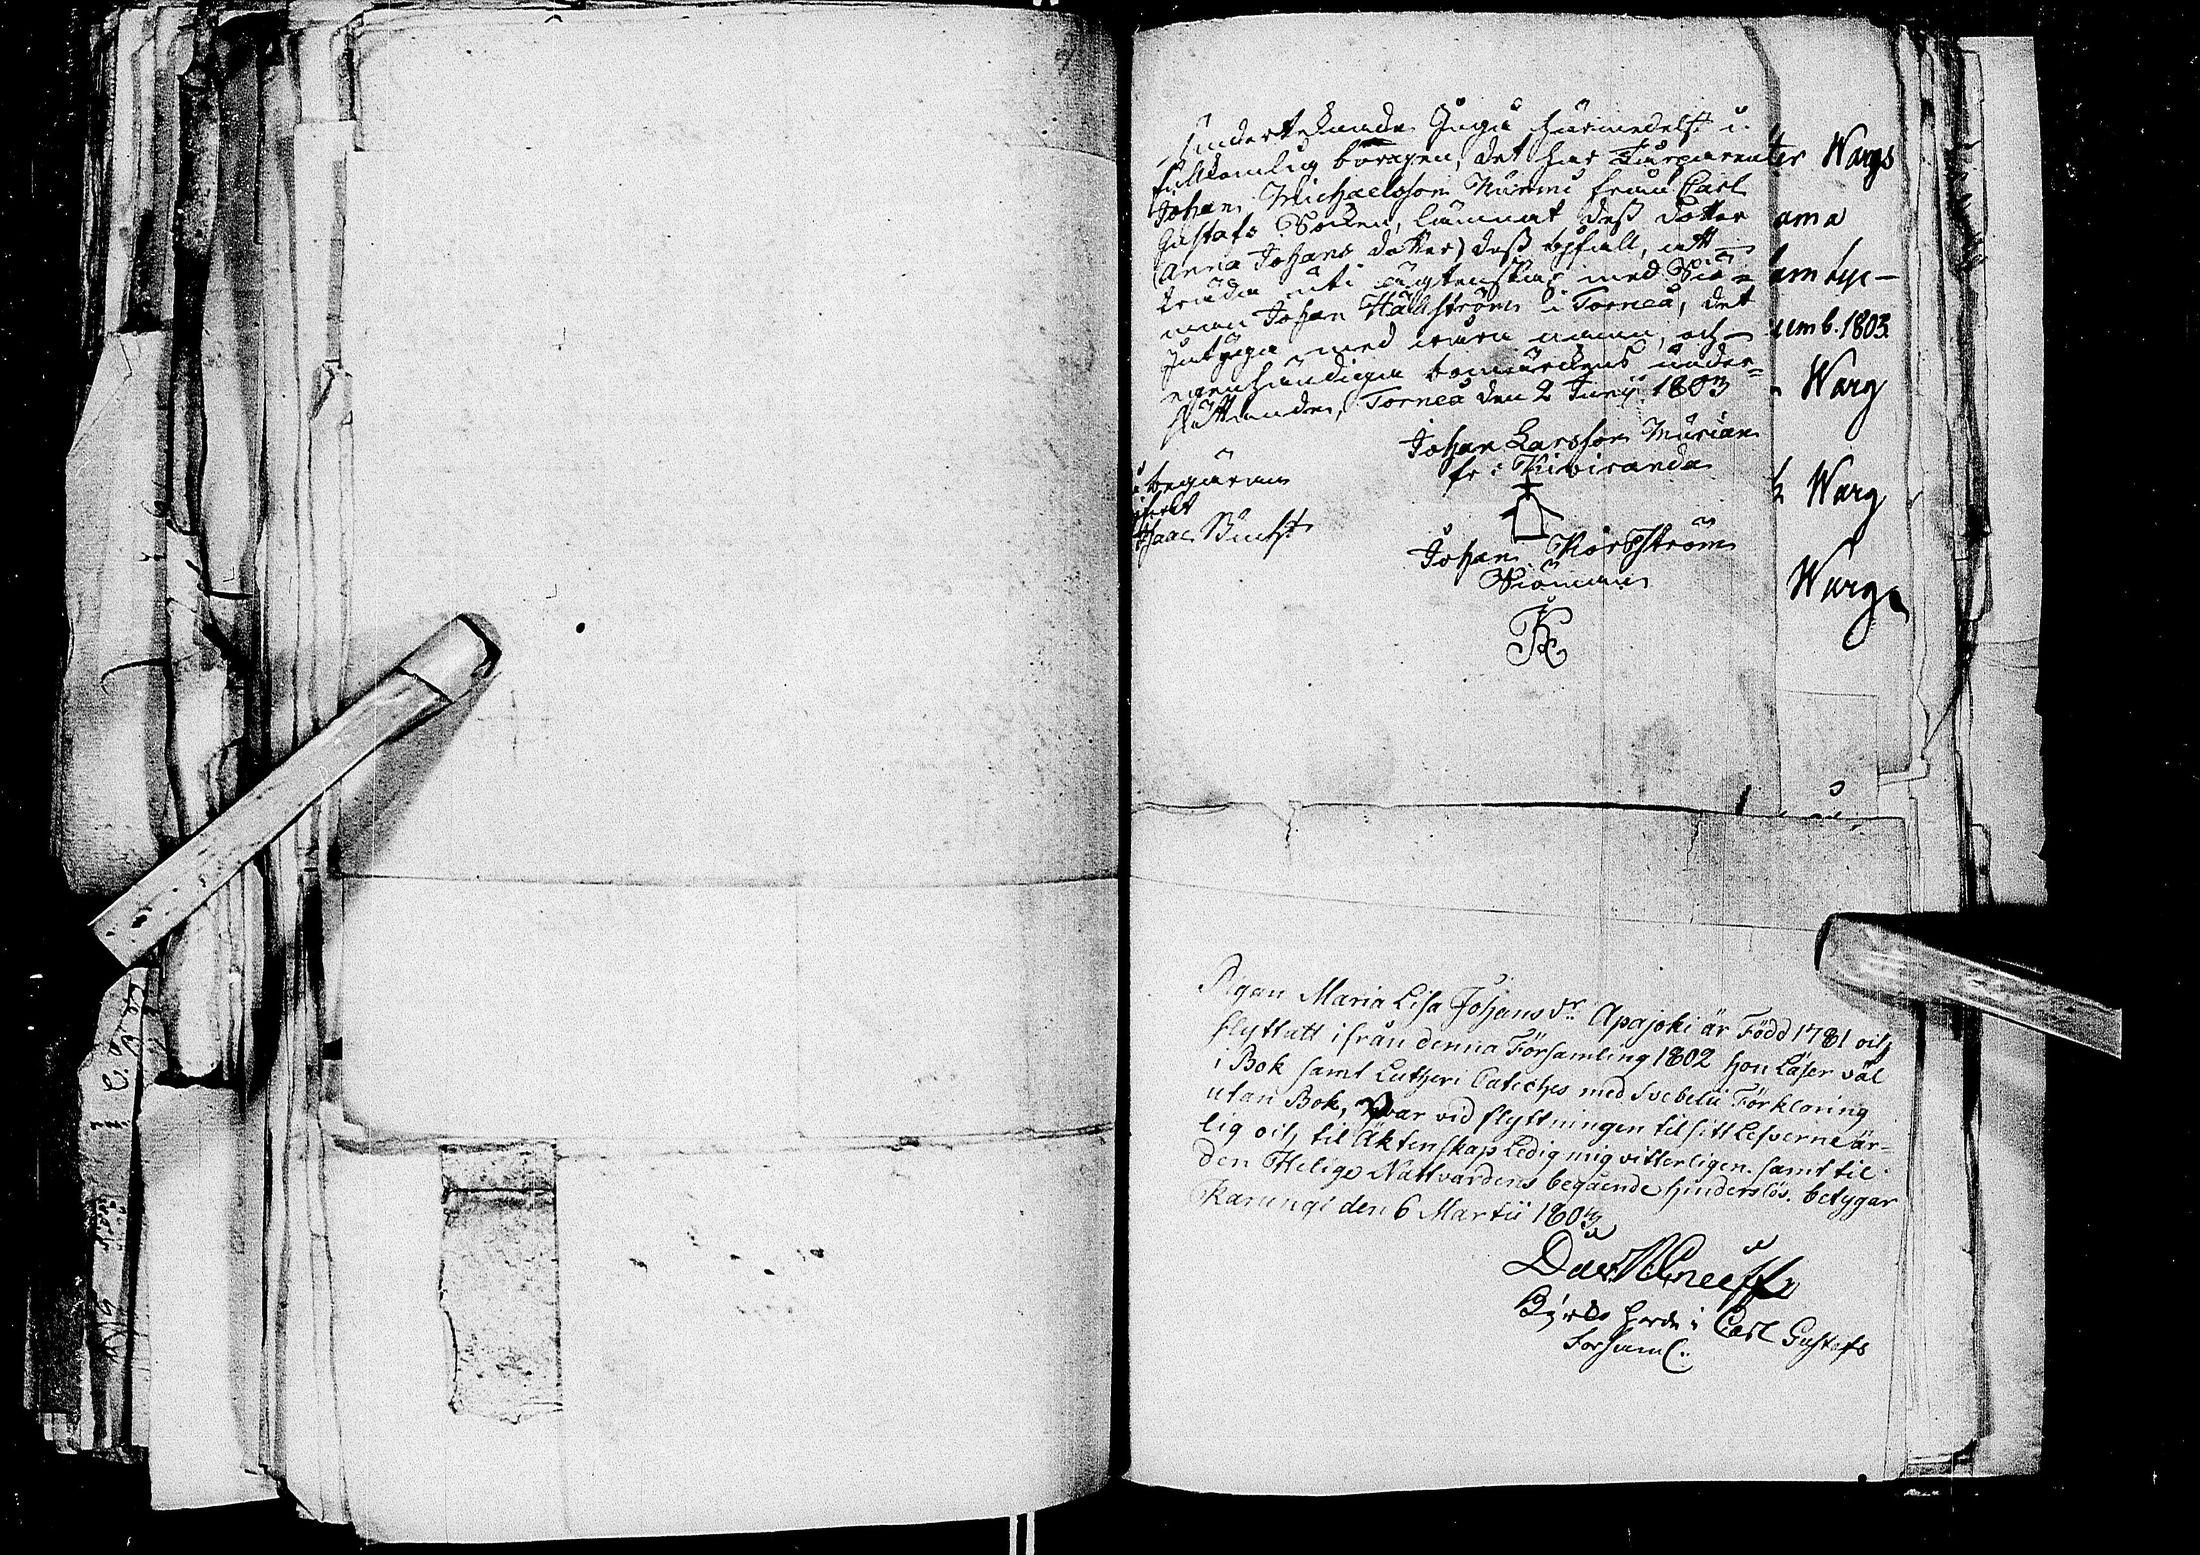 Undertecknade Ingå härmedelst i
fullkomlig borgen, det har Torparen
Johan Michaelsson Nurmi från Carl
Gustafs Socken, lämnat dess dotter
(Anna Johans dotter) dess bifall, att
träda uti ägtenskap med Siö=
man Johan Hällström i Torneå, det
Intyga med våra namn, och
egenhändiga bomärckens under=
sättande, Torneå den 2 Junij 1803
Johan Larsson
fr: Kiviranda
begäran
Isaac
Johan
Siöman
ter Wargs
ama
cemb. 1803.
Warg
Warg
Warg
Pigan Maria Lisa Johans dr. Apajoki är Född 1781 och
flyttatt ifrån denna Församling 1802 hon Läser väl
i Bok samt Lutheri Catiches med Svebelii Förklaring
utan Bok, var vid flyttningen til sitt Lefverne är=
lig och til Äktenskap Ledig mig vitterligen. samt til
den Helige Nattvardens begående hinderslös. betygar
Karungi den 6 Martii 1803
Dav.
i Carl Gustafs
Forsaml: